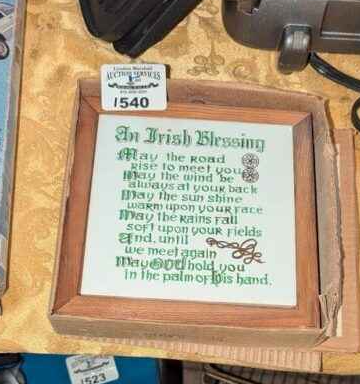 AUCTION SERVICES
1540
An Irish Blessing
May the road
rise to meet you
May the wind be
always at your back
May the sun shine
warm upon your face
May the rains fall
soft upon your fields
And, until
we meet again
May God hold you
in the palm of His hand.
1523